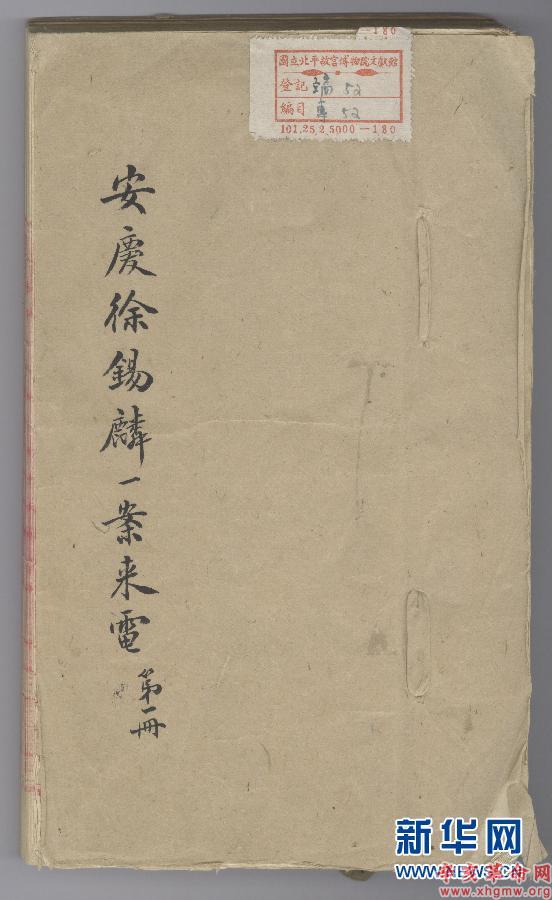 -180
國立北平故宮博物院文獻館
登記 端 52
編目 專 52
101.25,2,5000—180
安慶徐錫麟一案来電
第一冊
新华网
WWW.NEWS.CN
辛亥革命网
www.xhgmw.org